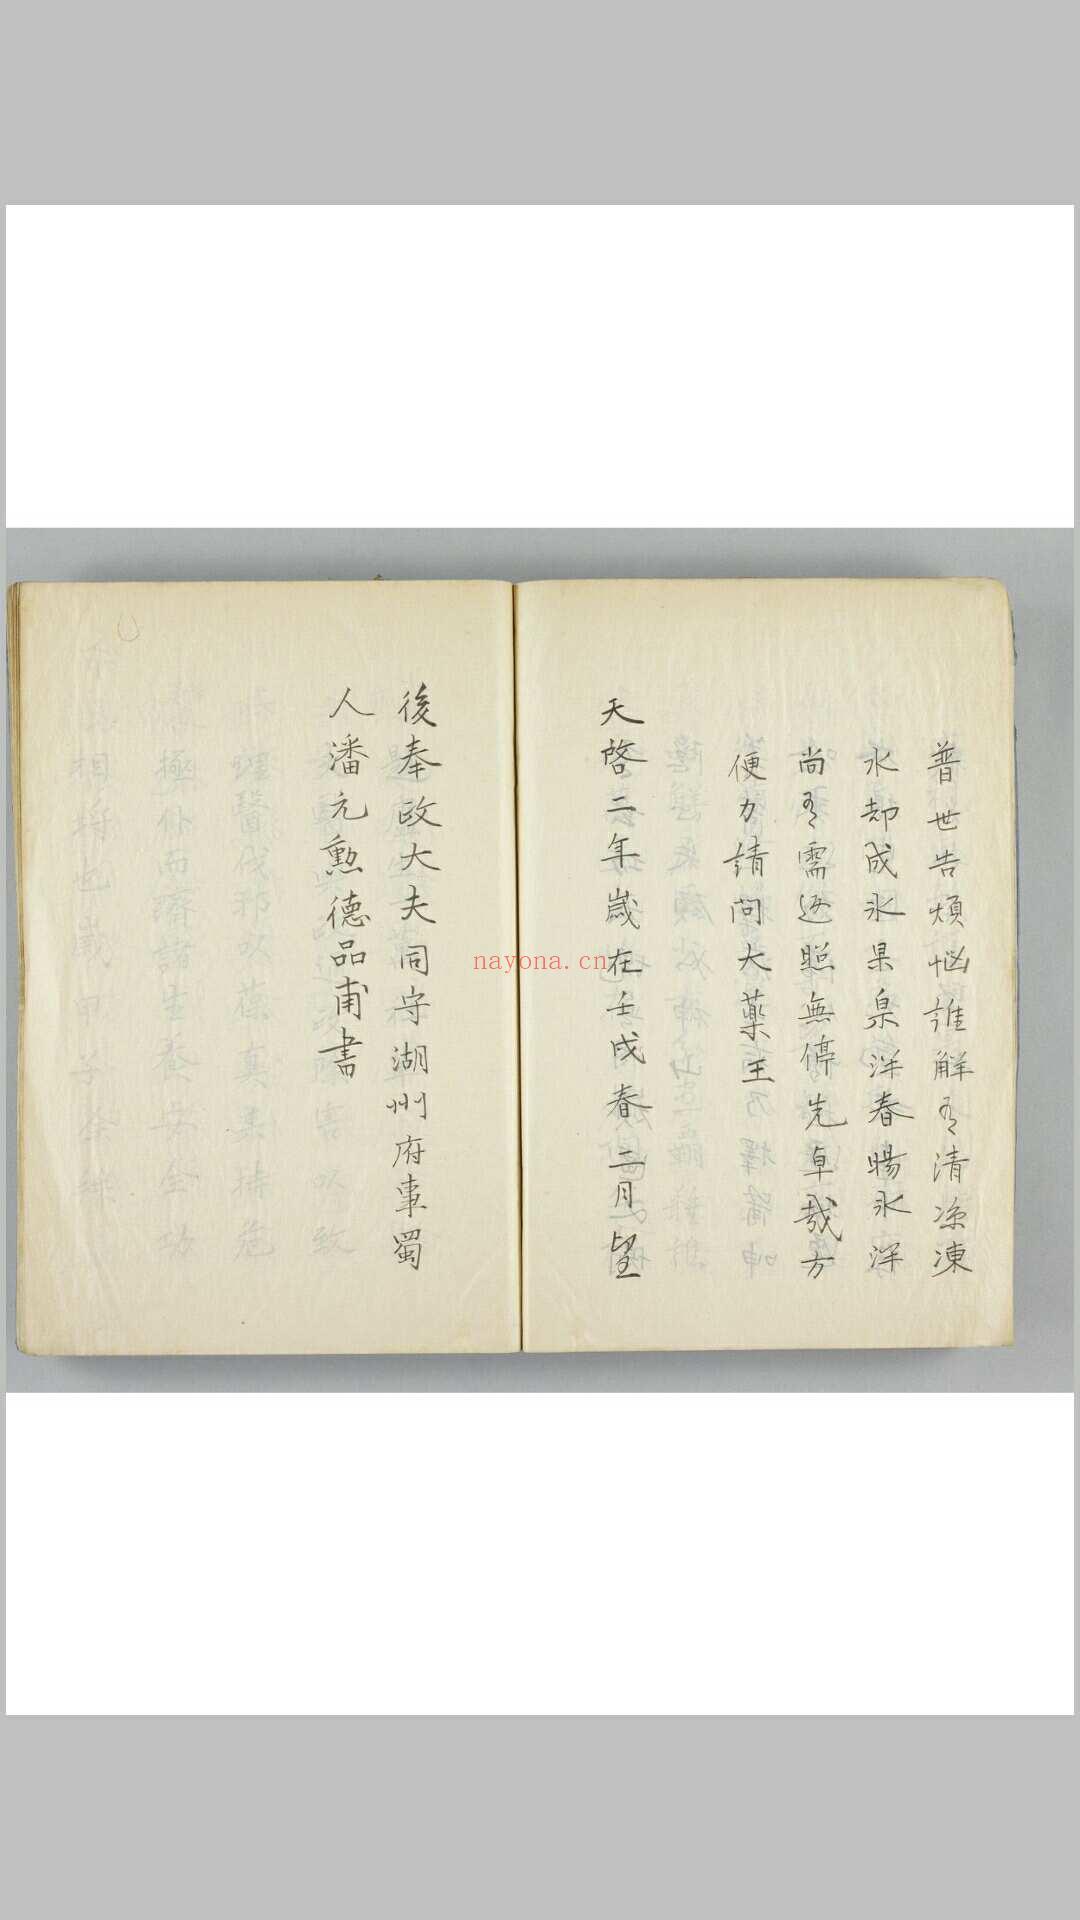 普世告煩惱誰解有清凉凍
水却成氷果泉洋春暘氷洋
尚有需逐照無停先卓哉方
便力請问大藥王
天啓二年歲在壬戌春二月望
後奉政大夫同守湖州府事蜀
人潘元勲德品甫書
nayona.cn